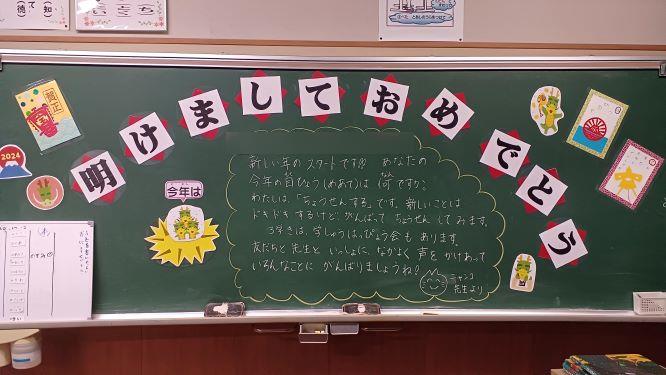 明けましておめでとう
賀正
2024
今年は
新しい年のスタートです!! あなたの
今年の目ひょう(めあて)は 何ですか?
わたしは、「ちょうせんする」です。新しいことは
ドキドキするけど、がんばって ちょうせん してみます。
3学きは、学しゅうはっぴょう会も あります。
友だちと 先生と いっしょに、なかよく 声を かけあって
いろんなことに がんばりましょうね!
ニャンコ
先生より